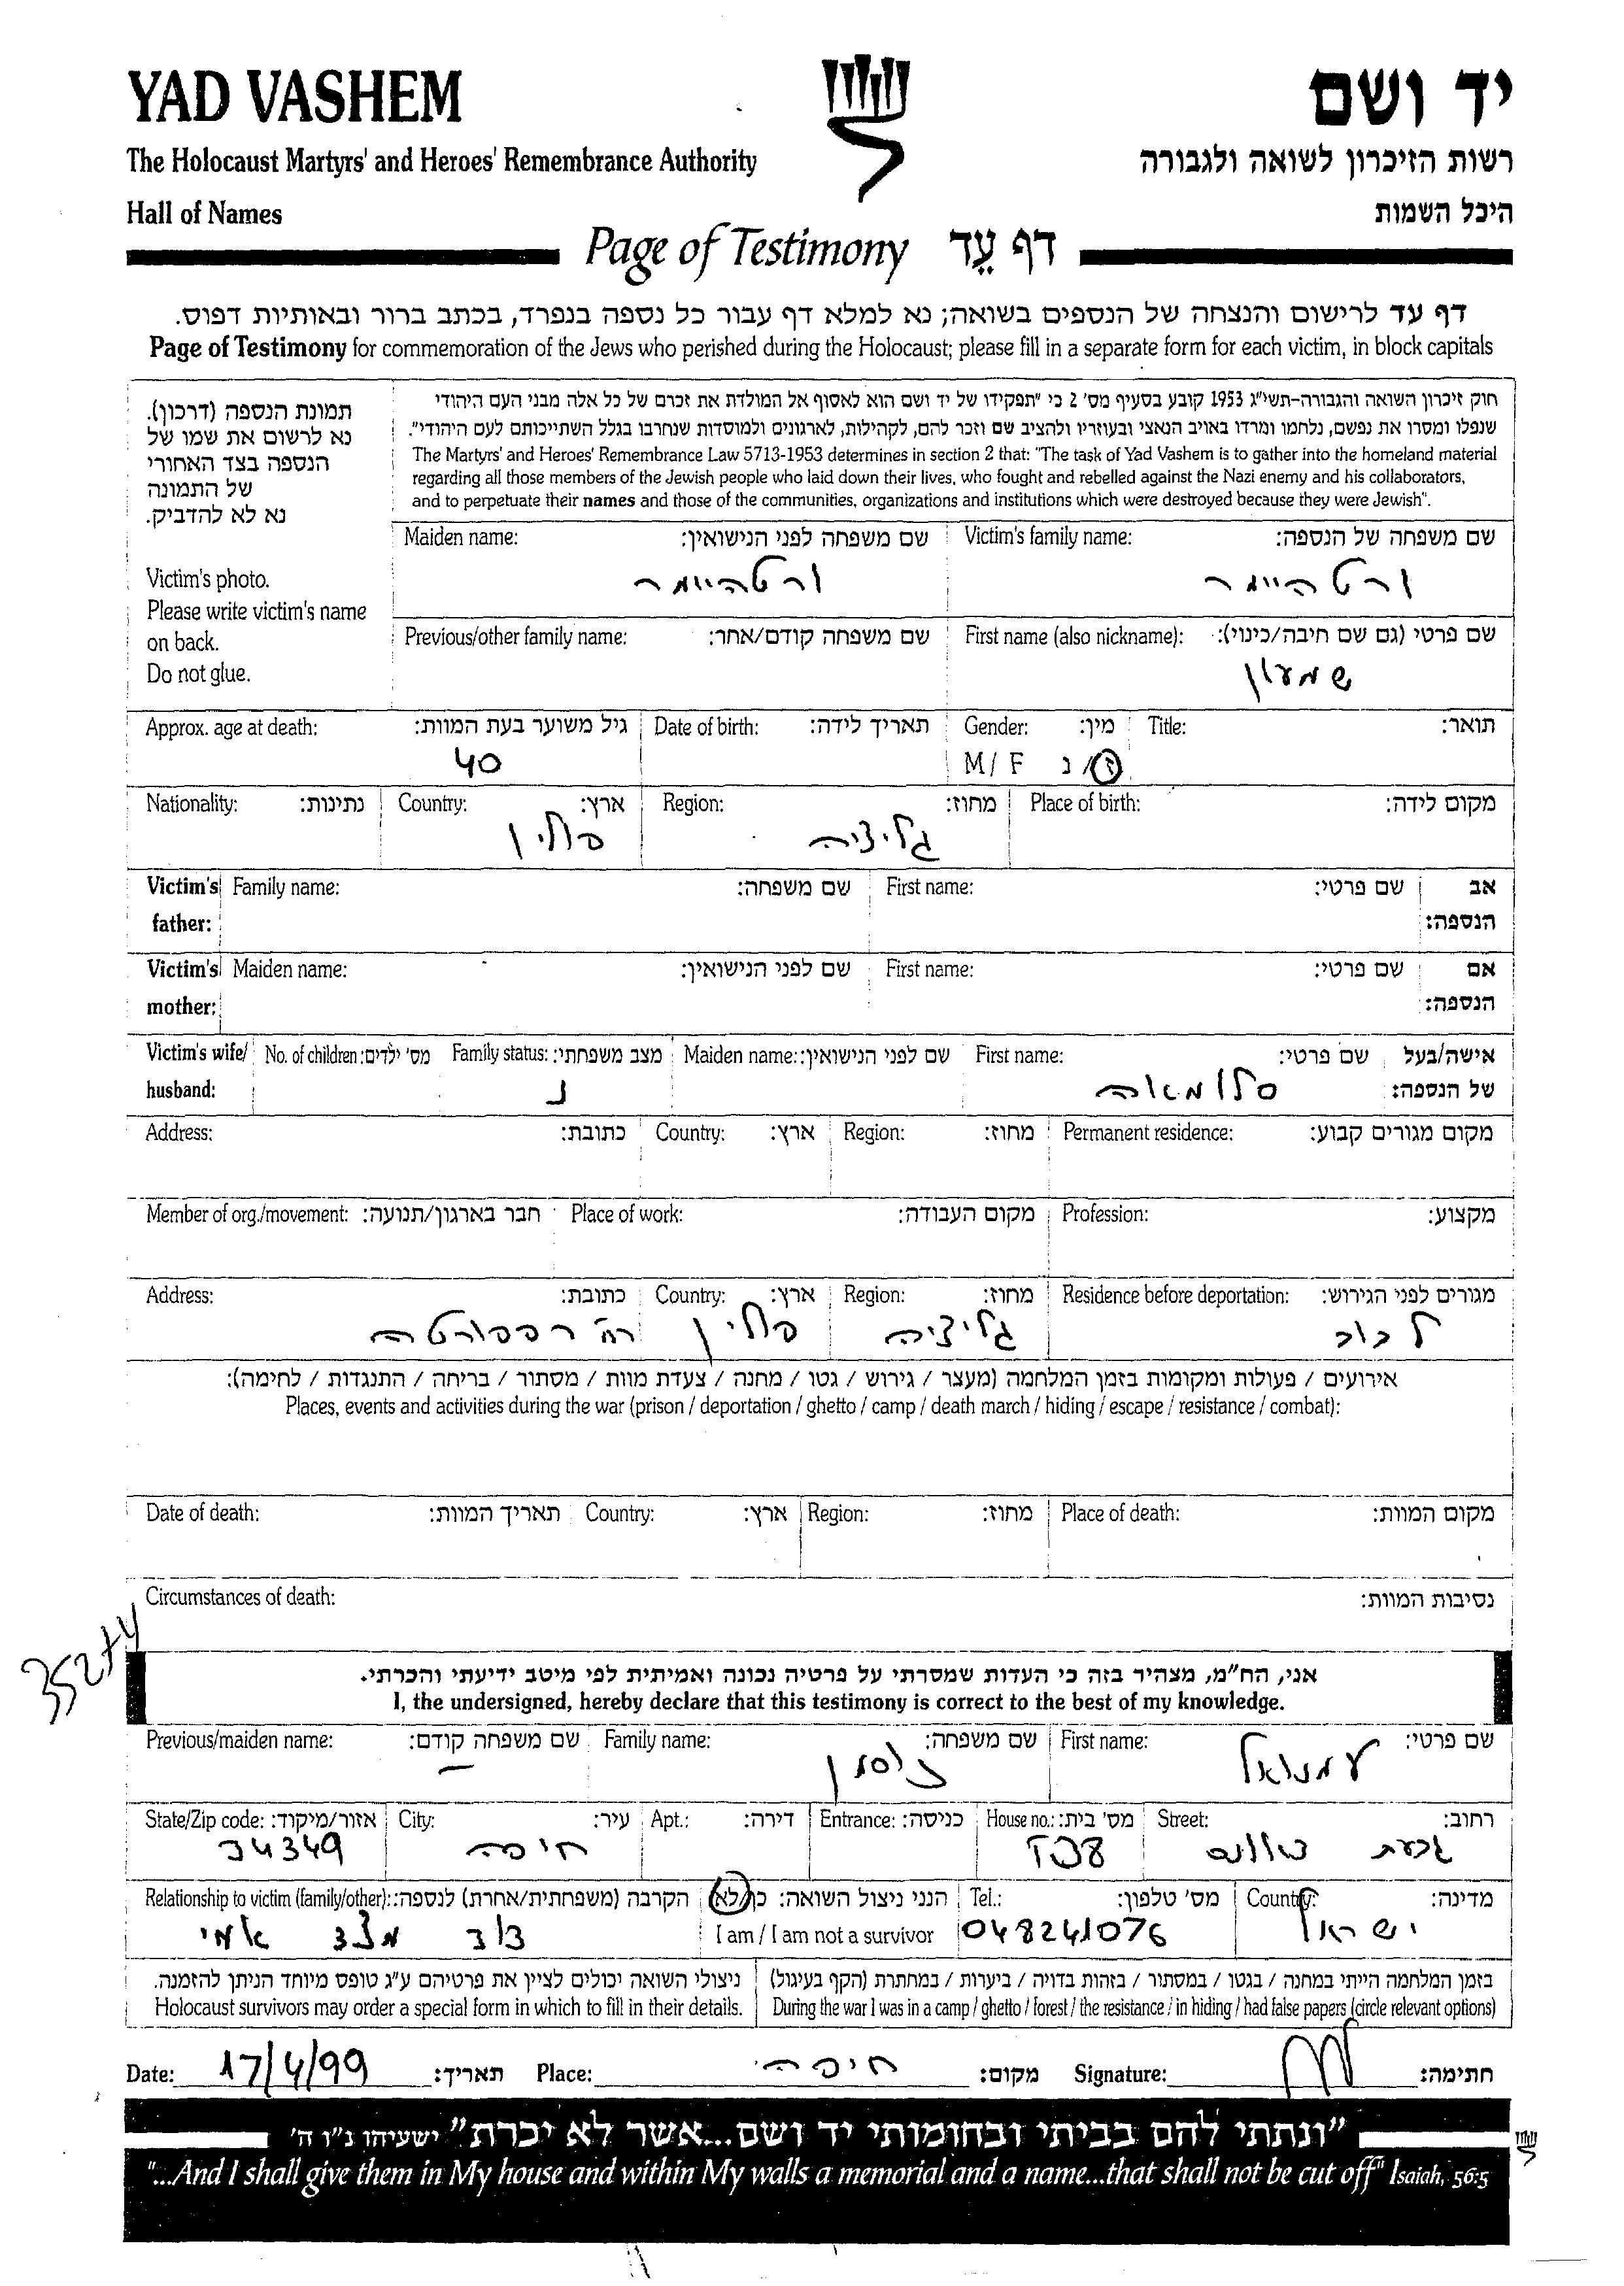 YAD VASHEM
יד ושם
The Holocaust Martyrs' and Heroes' Remembrance Authority
רשות הזיכרון לשואה ולגבורה
Hall of Names
היכל השמות
Page of Testimony דף עֵד
דף עד לרישום והנצחה של הנספים בשואה; נא למלא דף עבור כל נספה בנפרד, בכתב ברור ובאותיות דפוס.
Page of Testimony for commemoration of the Jews who perished during the Holocaust; please fill in a separate form for each victim, in block capitals
תמונת הנספה (דרכון).
נא לרשום את שמו של
הנספה בצד האחורי
של התמונה
נא לא להדביק.
Victim's photo.
Please write victim's name
on back.
Do not glue.
חוק זיכרון השואה והגבורה-תשי"ג 1953 קובע בסעיף מס' 2 כי "תפקידו של יד ושם הוא לאסוף אל המולדת את זכרם של כל אלה מבני העם היהודי
שנפלו ומסרו את נפשם, נלחמו ומרדו באויב הנאצי ובעוזריו ולהציב שם וזכר להם, לקהילות, לארגונים ולמוסדות שנחרבו בגלל השתייכותם לעם היהודי".
The Martyrs' and Heroes' Remembrance Law 5713-1953 determines in section 2 that: "The task of Yad Vashem is to gather into the homeland material
regarding all those members of the Jewish people who laid down their lives, who fought and rebelled against the Nazi enemy and his collaborators,
and to perpetuate their names and those of the communities, organizations and institutions which were destroyed because they were Jewish".
Maiden name: שם משפחה לפני הנישואין: Victim's family name: שם משפחה של הנספה:
ורטהיימר ורטהיימר
Previous/other family name: שם משפחה קודם/אחר: First name (also nickname): שם פרטי (גם שם חיבה/כינוי):
שמעון
Approx. age at death: גיל משוער בעת המוות: Date of birth: תאריך לידה: Gender: מין: Title: תואר:
40 M/ F ז/נ
Nationality: נתינות: Country: ארץ: Region: מחוז: Place of birth: מקום לידה:
פולין גליציה
Victim's Family name: שם משפחה: First name: שם פרטי: אב
father: הנספה:
Victim's Maiden name: שם לפני הנישואין: First name: שם פרטי: אם
mother: הנספה:
Victim's wife/ No. of children: מס' ילדים: Family status: מצב משפחתי: Maiden name: שם לפני הנישואין: First name: שם פרטי: אישה/בעל
husband: נ סלומאה של הנספה:
Address: כתובת: Country: ארץ: Region: מחוז: Permanent residence: מקום מגורים קבוע:
Member of org./movement: חבר בארגון/תנועה: Place of work: מקום העבודה: Profession: מקצוע:
Address: כתובת: Country: ארץ: Region: מחוז: Residence before deportation: מגורים לפני הגירוש:
רח' רפפורטה פולין גליציה לבוב
אירועים / פעולות ומקומות בזמן המלחמה (מעצר / גירוש / גטו / מחנה / צעדת מוות / מסתור / בריחה / התנגדות / לחימה):
Places, events and activities during the war (prison / deportation / ghetto / camp / death march / hiding / escape / resistance / combat):
Date of death: תאריך המוות: Country: ארץ: Region: מחוז: Place of death: מקום המוות:
Circumstances of death: נסיבות המוות:
35274
אני, הח"מ, מצהיר בזה כי העדות שמסרתי על פרטיה נכונה ואמיתית לפי מיטב ידיעתי והכרתי.
I, the undersigned, hereby declare that this testimony is correct to the best of my knowledge.
Previous/maiden name: שם משפחה קודם: Family name: שם משפחה: First name: שם פרטי:
– עמנואל
State/Zip code: אזור/מיקוד: City: עיר: Apt.: דירה: Entrance: כניסה: House no.: מס' בית: Street: רחוב:
34349 חיפה גבעת דאונס
Relationship to victim (family/other): הקרבה (משפחתית/אחרת) לנספה: הנני ניצול השואה: כן/לא Tel.: מס' טלפון: Country: מדינה:
דוד מצד אמי I am / I am not a survivor 048241076 ישראל
ניצולי השואה יכולים לציין את פרטיהם ע"ג טופס מיוחד הניתן להזמנה. בזמן המלחמה הייתי במחנה / בגטו / במסתור / בזהות בדויה / ביערות / במחתרת (הקף בעיגול)
Holocaust survivors may order a special form in which to fill in their details. During the war I was in a camp / ghetto / forest / the resistance / in hiding / had false papers (circle relevant options)
Date: 17/4/99 תאריך: Place: חיפה מקום: Signature: חתימה:
"ונתתי להם בביתי ובחומותי יד ושם...אשר לא יכרת" ישעיהו נ"ו ה'
"...And I shall give them in My house and within My walls a memorial and a name...that shall not be cut off" Isaiah, 56:5